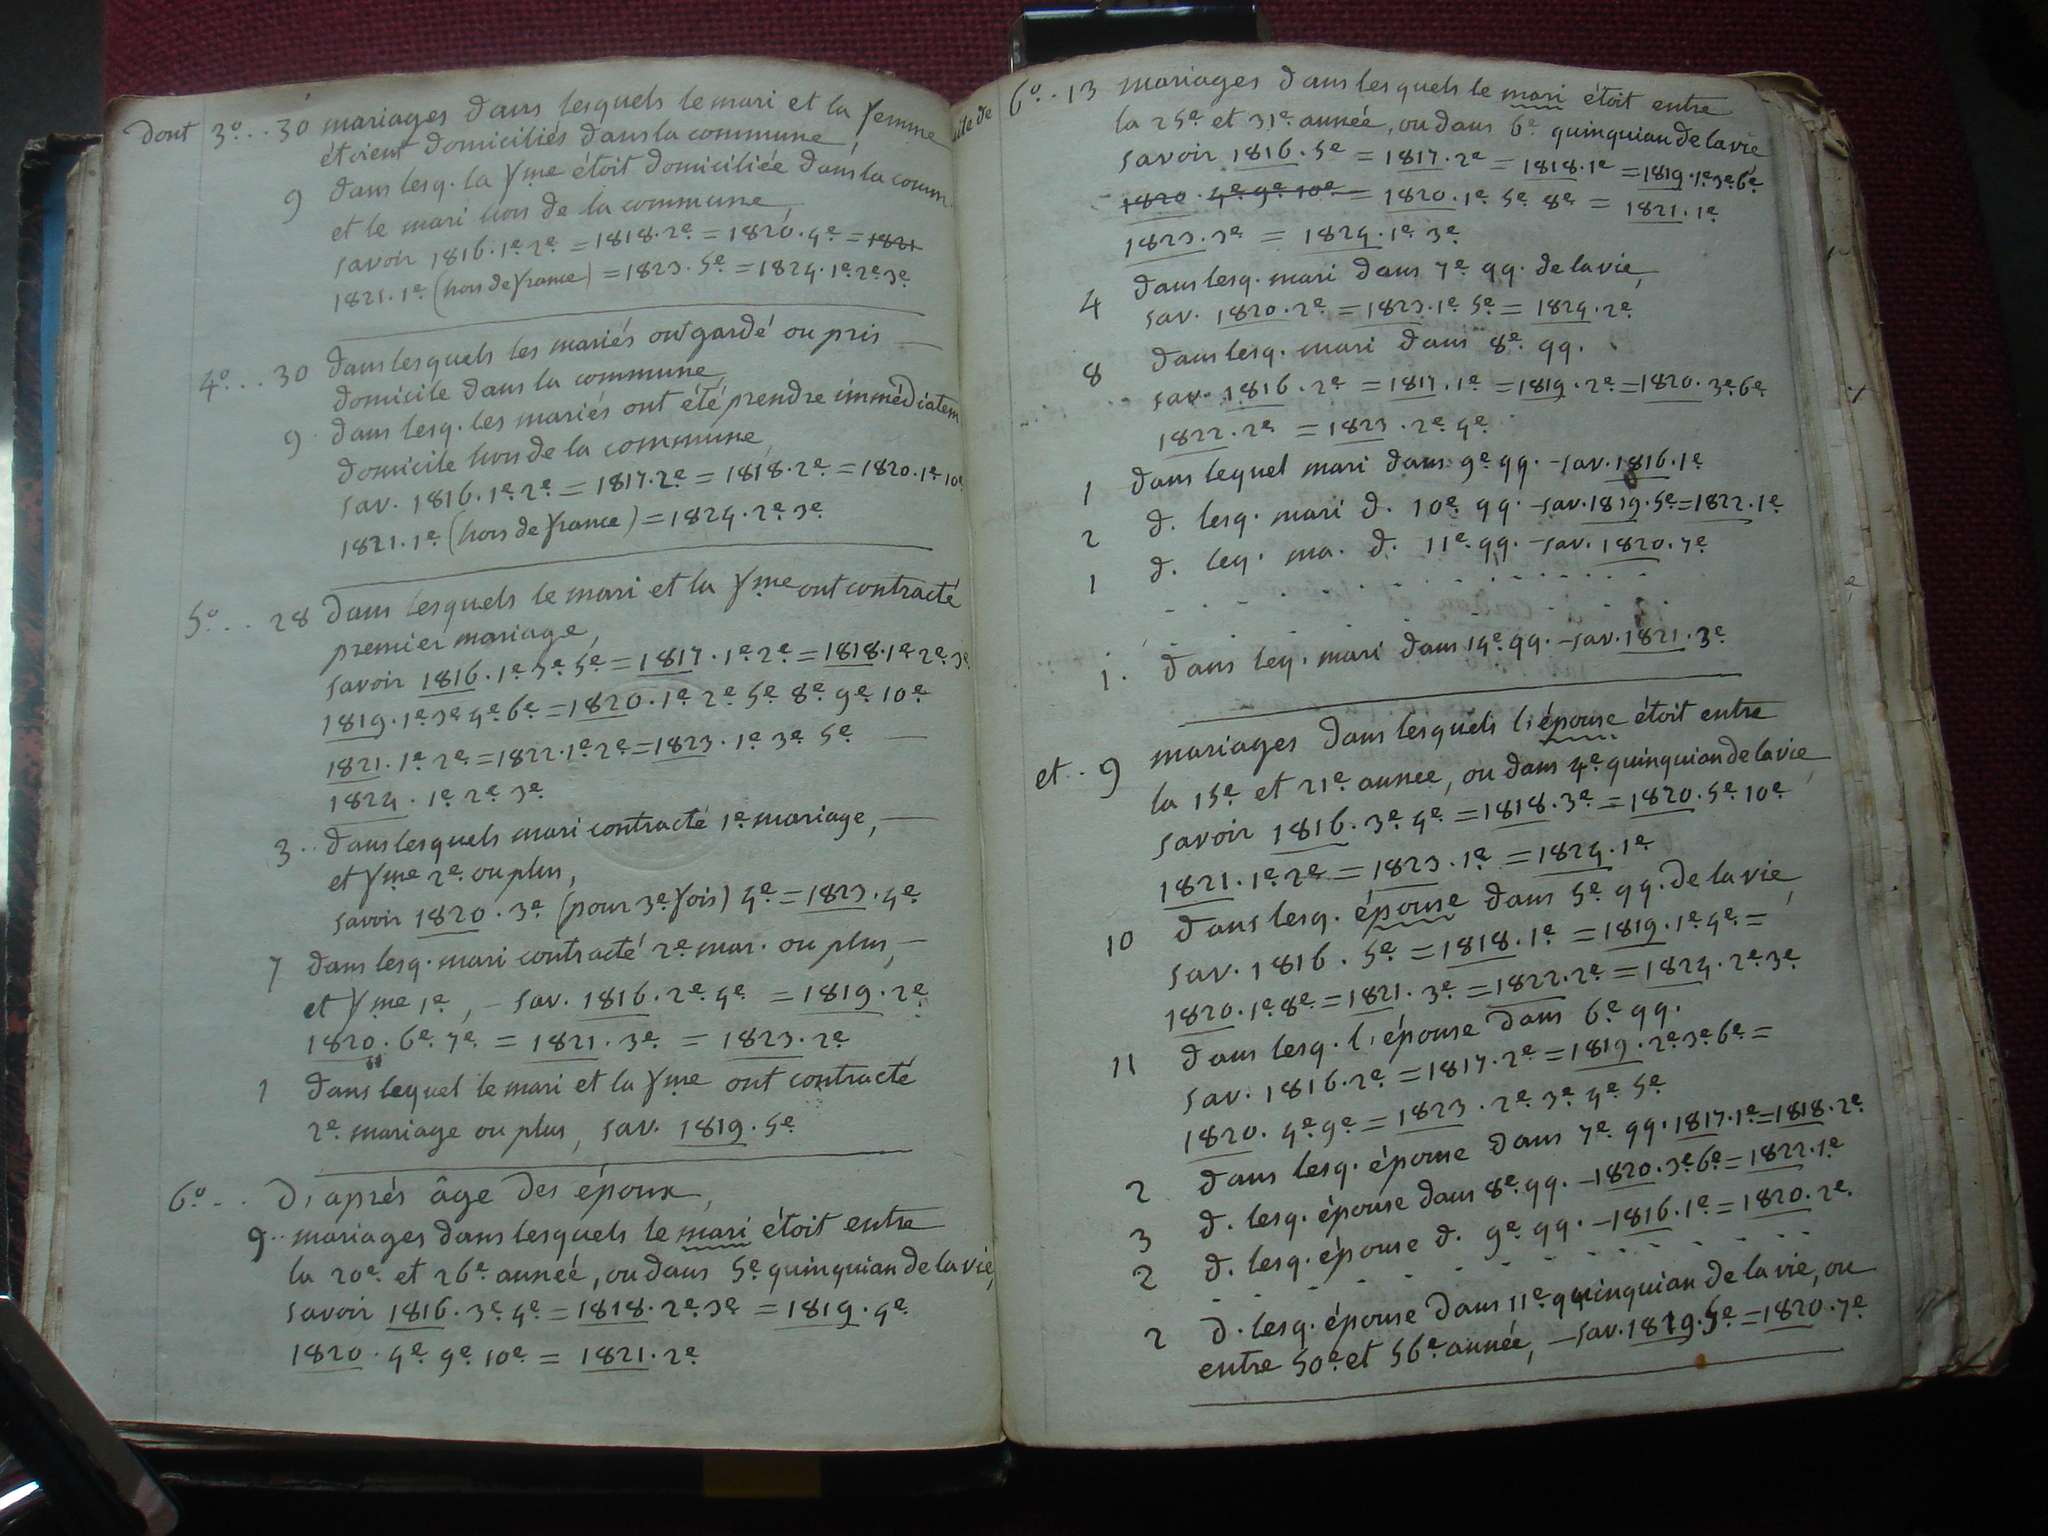 dont 3º... 30 mariages dans lesquels le mari et la femme
étoient domiciliés dans la commune,
9 dans lesq. la fme étoit domiciliée dans la comm.
et le mari hors de la commune,
savoir 1816. 1e. 2e. = 1818. 2e. = 1820. 4e. = 1821
1821. 1e. (hors de france) = 1823. 5e. = 1824. 1e. 2e. 3e.
4º... 30 dans lesquels les mariés ont gardé ou pris
domicile dans la commune,
9 dans lesq. les mariés ont été prendre immédiatem
domicile hors de la commune,
sav. 1816. 1e. 2e. = 1817. 2e. = 1818. 2e. = 1820. 1e. 10e.
1821. 1e. (hors de france) = 1824. 2e. 3e.
5º... 28 dans lesquels le mari et la fme ont contracté
premier mariage,
savoir 1816. 1e. 3e. 5e. = 1817. 1e. 2e. = 1818. 1e. 2e. 3e.
1819. 1e. 3e. 4e. 6e. = 1820. 1e. 2e. 5e. 8e. 9e. 10e.
1821. 1e. 2e. = 1822. 1e. 2e. = 1823. 1e. 3e. 5e.
1824. 1e. 2e. 3e.
3.. dans lesquels mari contracté 1e. mariage,
et fme 2e. ou plus,
savoir 1820. 3e. (pour 3e. fois) 4e. = 1823. 4e.
7 dans lesq. mari contracté 2e. mar. ou plus,
et fme 1e., - sav. 1816. 2e. 4e. = 1819. 2e.
1820. 6e. 7e. = 1821. 3e. = 1823. 2e.
1 dans lequel le mari et la fme ont contracté
2e. mariage ou plus, sav. 1819. 5e.
6º... d'après âge des époux,
9.. mariages dans lesquels le mari étoit entre
la 20e. et 26e. année, ou dans 5e. quinquian de la vie,
savoir 1816. 3e. 4e. = 1818. 2e. 3e. = 1819. 4e.
1820. 4e. 9e. 10e. = 1821. 2e.
ite de 6º.. 13 mariages dans lesquels le mari étoit entre
la 25e. et 31e. année, ou dans 6e. quinquian de la vie
savoir 1816. 5e. = 1817. 2e. = 1818. 1e. = 1819. 1e. 3e. 6e.
1820. 4e. 9e. 10e. = 1820. 1e. 5e. 8e. = 1821. 1e.
1823. 3e. = 1824. 1e. 3e.
4 dans lesq. mari dans 7e. qq. de la vie,
sav. 1820. 2e. = 1823. 1e. 5e. = 1824. 2e.
8 dans lesq. mari dans 8e. qq.
sav. 1816. 2e. = 1817. 1e. = 1819. 2e. = 1820. 3e. 6e.
1822. 2e. = 1823. 2e. 4e.
1 dans lequel mari dans 9e. qq. - sav. 1816. 1e.
2 d. lesq. mari d. 10e. qq. - sav. 1819. 5e. = 1822. 1e.
1 d. leq. ma. d. 11e. qq. - sav. 1820. 7e.
1. dans leq. mari dans 14e. qq. - sav. 1821. 3e.
et.. 9 mariages dans lesquels l'épouse étoit entre
la 15e. et 21e. année, ou dans 4e. quinquian de la vie,
savoir 1816. 3e. 4e. = 1818. 3e. = 1820. 5e. 10e.
1821. 1e. 2e. = 1823. 1e. = 1824. 1e.
10 dans lesq. épouse dans 5e. qq. de la vie,
sav. 1816. 5e. = 1818. 1e. = 1819. 1e. 4e. =
1820. 1e. 8e. = 1821. 3e. = 1822. 2e. = 1824. 2e. 3e.
11 dans lesq. l'épouse dans 6e. qq.
sav. 1816. 2e. = 1817. 2e. = 1819. 2e. 3e. 6e. =
1820. 4e. 9e. = 1823. 2e. 3e. 4e. 5e.
2 dans lesq. épouse dans 7e. qq. 1817. 1e. = 1818. 2e.
3 d. lesq. épouse dans 8e. qq. - 1820. 3e. 6e. = 1822. 1e.
2 d. lesq. épouse d. 9e. qq. - 1816. 1e. = 1820. 2e.
2 d. lesq. épouse dans 11e. quinquian de la vie, ou
entre 50e. et 56e. année, - sav. 1819. 5e. = 1820. 7e.